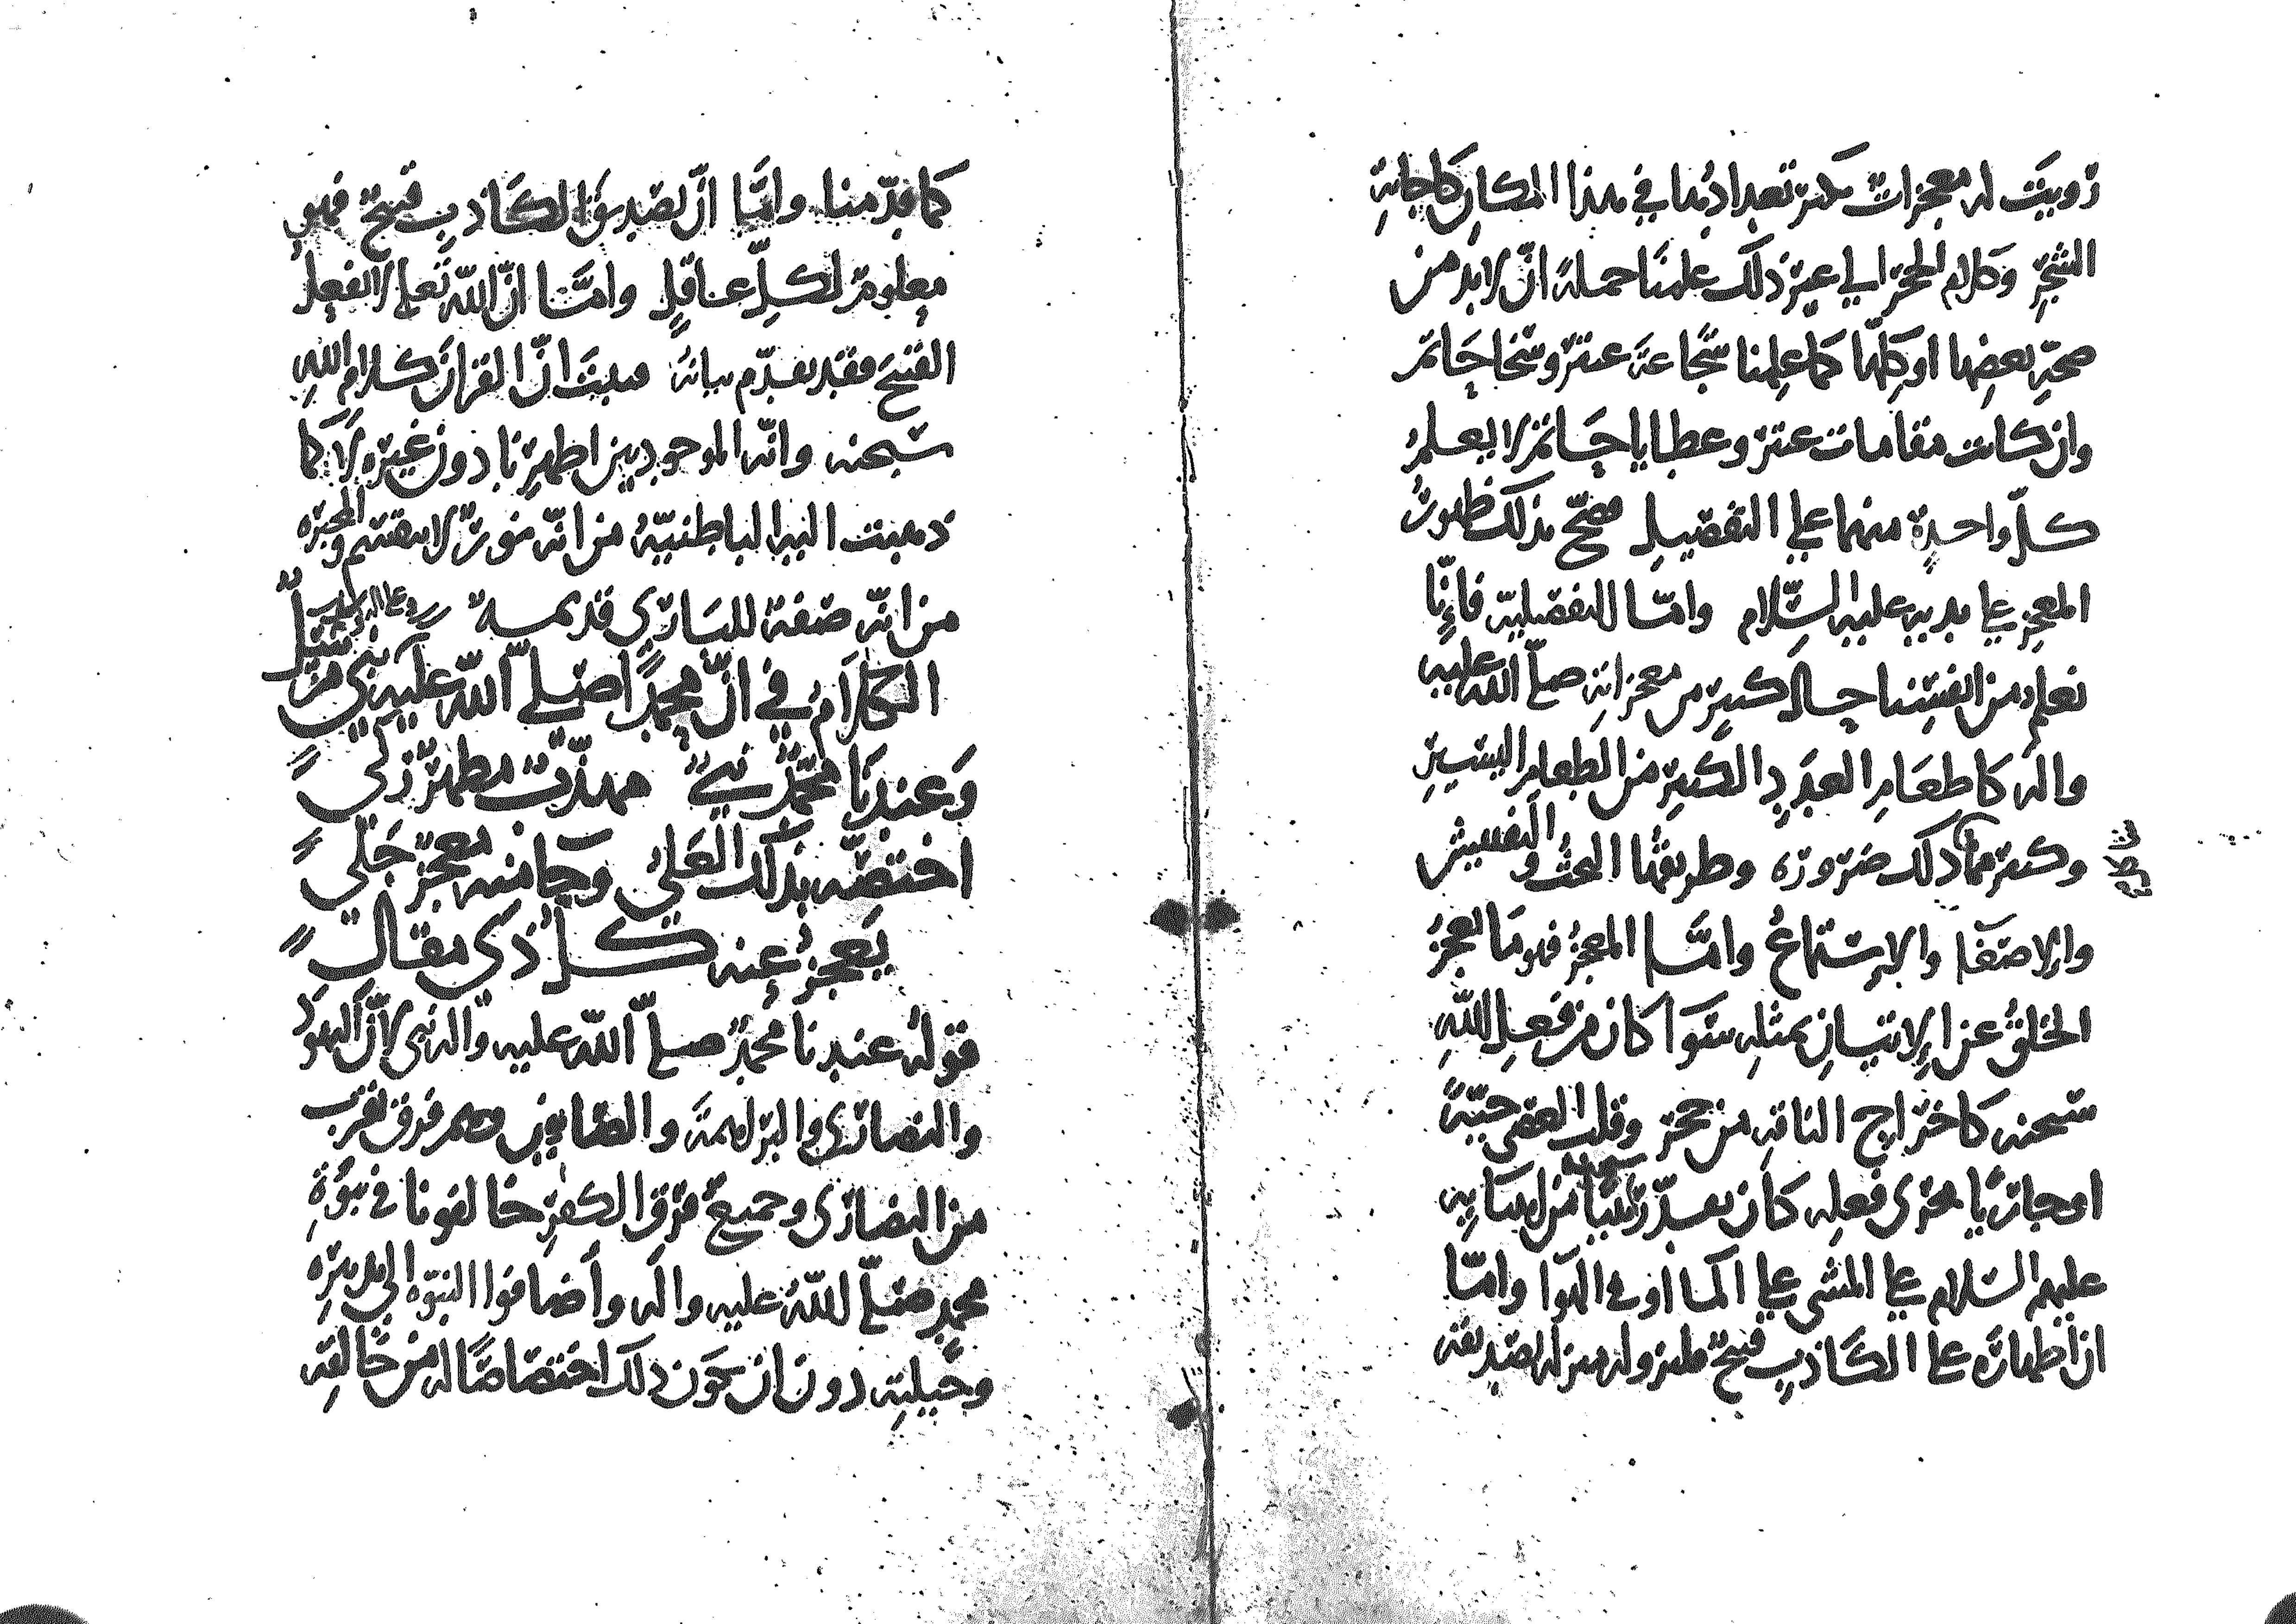 رويت له معجزات يكثر تعدادها في هذا المكان كاجابة
الشجر وكلام الحجر الى غير ذلك علمنا جملة انه لابد من
صحة بعضها او كلها كما علمنا شجاعة عنتر وسخا حاتم
وان كانت مقامات عنتر وعطايا حاتم لا يعلم
كل واحدة منهما على التفصيل فصح بذلك ظهور
المعجز على يديه عليه السلام واما التفصيلية فانا
نعلم من انفسنا حالا كثير من معجزاته صلى الله عليه
واله كاطعام العدد الكثير من الطعام اليسير
وكثر مما ذلك ضرورة وطريقها البحث والتفتيش
والاصغا والاستماع واما المعجز فهو ما يعجز
الخلق عن الاتيان بمثله سوا كان من فعل الله
سبحنه كاخراج الناقة من حجر وقلب العصى حية
او جاريا مجرى فعله كأن يقدر نبيا من انبيايه
عليهم السلام على المشي على الما او في الهوا واما
ان اظهاره على الكاذب قبيح فلنزوله منزلة تصديقه
كما قدمنا واما ان تصديق الكاذب قبيح فهو
معلوم لكل عاقل واما ان الله تعلى لا يفعل
القبيح فقد تقدم بيانه فيثبت ان القران كلام الله
سبحنه وانه الموجود بين اظهرنا دون غيره لا كما
ذهبت اليه الباطنية من انه منوي لا يفهم والمجبرة
من انه صفة للباري قديمة
الكلام في ان محمدا صلى الله عليه نبي مرسل
وعندنا محمد نبي مهذب مطهر زكي
اختصه بذلك العلي وجا منه معجز جلي
يعجز عنه كل ذي مقال
قوله عندنا محمد صلى الله عليه واله نبي لأن اليهود
والنصارى والبراهمة والصابين وهم فرق تقرب
من النصارى وجميع فرق الكفر خالفونا في نبوة
محمد صلى الله عليه واله وأضافوا النبوة الى تدبيره
وحيلته دون ان يكون ذلك اختصاصا له من خالقه